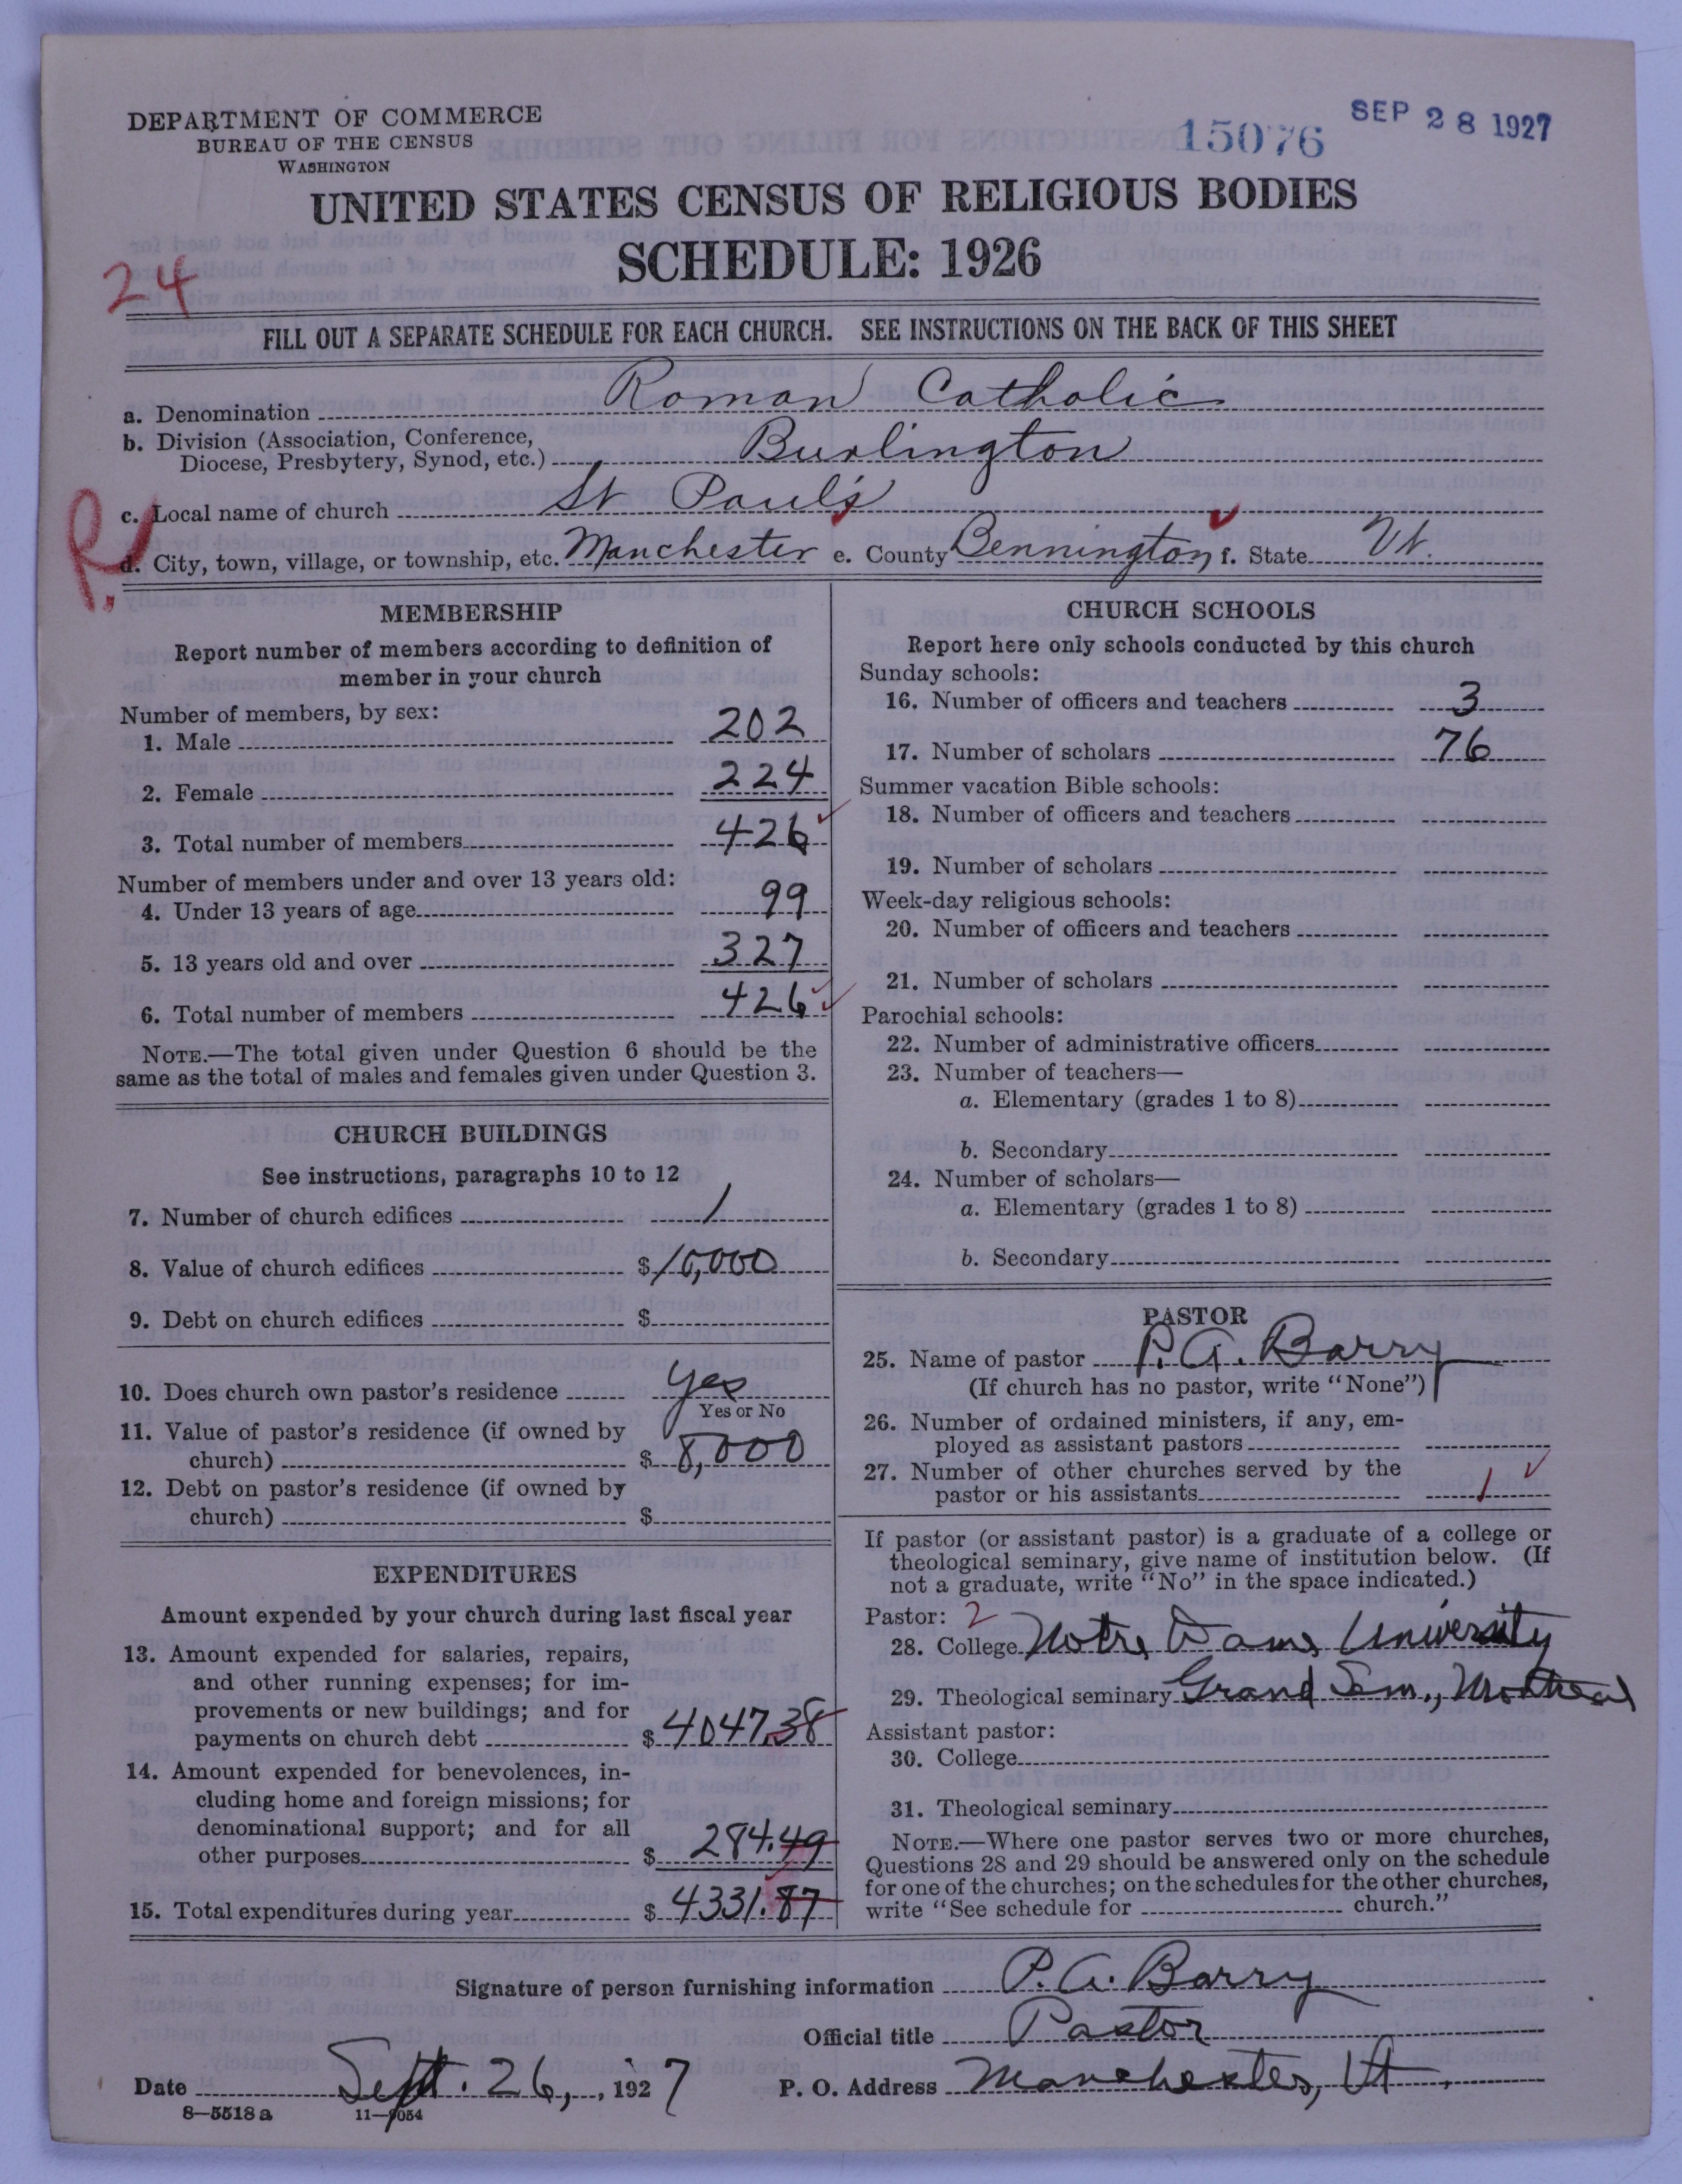 DEPARTMENT OF COMMERCE
BUREAU OF THE CENSUS
WASHINGTON
15076
SEP 28 1927
UNITED STATES CENSUS OF RELIGIOUS BODIES
SCHEDULE: 1926
24
FILL OUT A SEPARATE SCHEDULE FOR EACH CHURCH. SEE INSTRUCTIONS ON THE BACK OF THIS SHEET
a. Denomination Roman Catholic
b. Division (Association, Conference,
Diocese, Presbytery, Synod, etc.) Burlington
c. Local name of church St Paul's
R.
d. City, town, village, or township, etc. Manchester e. County Bennington f. State Vt.
MEMBERSHIP
Report number of members according to definition of
member in your church
Number of members, by sex:
1. Male 202
2. Female 224
3. Total number of members 426
Number of members under and over 13 years old:
4. Under 13 years of age 99
5. 13 years old and over 327
6. Total number of members 426
NOTE.—The total given under Question 6 should be the
same as the total of males and females given under Question 3.
CHURCH BUILDINGS
See instructions, paragraphs 10 to 12
7. Number of church edifices 1
8. Value of church edifices $10,000
9. Debt on church edifices $
10. Does church own pastor's residence yes
Yes or No
11. Value of pastor's residence (if owned by
church) $ 8,000
12. Debt on pastor's residence (if owned by
church) $
EXPENDITURES
Amount expended by your church during last fiscal year
13. Amount expended for salaries, repairs,
and other running expenses; for im-
provements or new buildings; and for
payments on church debt $ 4047.38
14. Amount expended for benevolences, in-
cluding home and foreign missions; for
denominational support; and for all
other purposes $ 284.49
15. Total expenditures during year $ 4331.87
CHURCH SCHOOLS
Report here only schools conducted by this church
Sunday schools:
16. Number of officers and teachers 3
17. Number of scholars 76
Summer vacation Bible schools:
18. Number of officers and teachers
19. Number of scholars
Week-day religious schools:
20. Number of officers and teachers
21. Number of scholars
Parochial schools:
22. Number of administrative officers
23. Number of teachers—
a. Elementary (grades 1 to 8)
b. Secondary
24. Number of scholars—
a. Elementary (grades 1 to 8)
b. Secondary
PASTOR
25. Name of pastor P. A. Barry
(If church has no pastor, write "None")
26. Number of ordained ministers, if any, em-
ployed as assistant pastors
27. Number of other churches served by the
pastor or his assistants 1
If pastor (or assistant pastor) is a graduate of a college or
theological seminary, give name of institution below. (If
not a graduate, write "No" in the space indicated.)
Pastor: 2
28. College Notre Dame University
29. Theological seminary Grand Sem., Montreal
Assistant pastor:
30. College
31. Theological seminary
NOTE.—Where one pastor serves two or more churches,
Questions 28 and 29 should be answered only on the schedule
for one of the churches; on the schedules for the other churches,
write "See schedule for church."
Signature of person furnishing information P. A. Barry
Official title Pastor
Date Sept. 26, , 1927 P. O. Address Manchester, Vt.
8—5518 a 11—9054